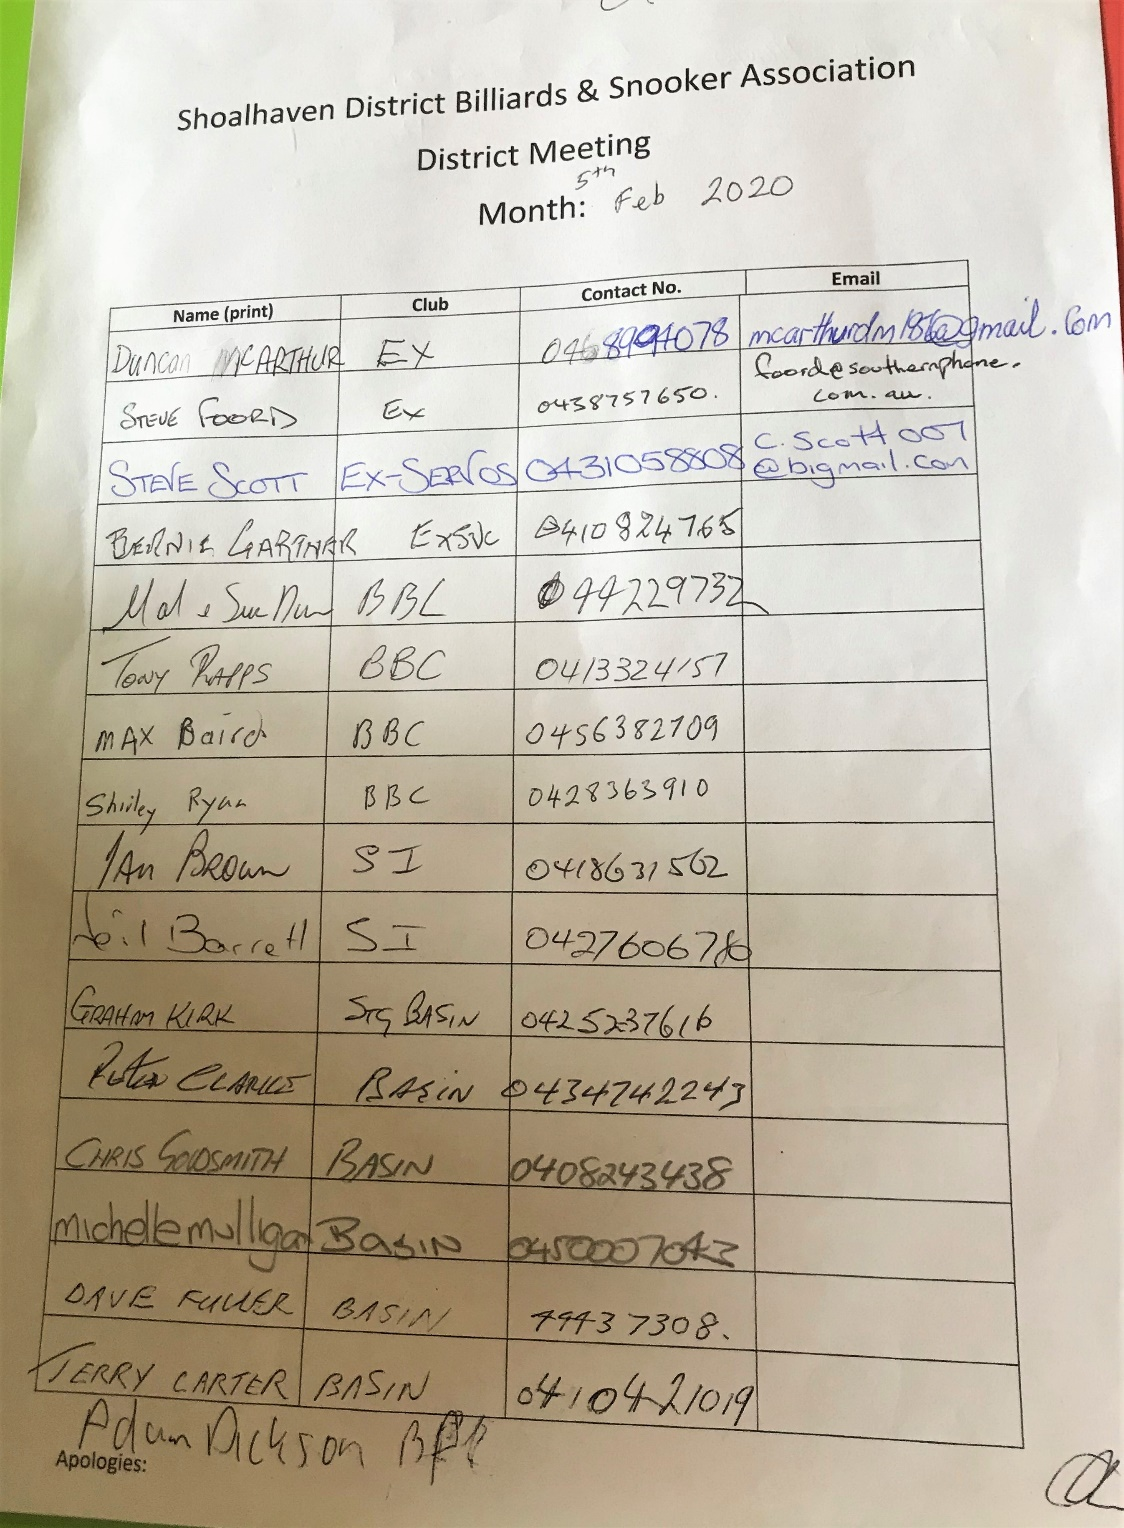 Shoalhaven District Billiards & Snooker Association
District Meeting
5th
Month: Feb 2020
Name (print) Club Contact No. Email
Duncan MCARTHUR EX mcarthurdm186@gmail.com
STEVE FOORD Ex 0438757650. foord@southernphone.
com.au.
STEVE SCOTT EX-SERVOS 0431058808 C.Scott007
@bigmail.com
BERNIE GARTNER EXSVC 0410824765
Mal & Sue BBC 044229732
TONY RAPPS BBC 0413324157
MAX Baird BBC 0456382709
Shirley Ryan BBC 0428363910
IAN BROWN SI 0418631562
Neil Barrett SI
GRAHAM KIRK STG BASIN 0425237616
CLARKE BASIN 0434742243
CHRIS GOLDSMITH BASIN 0408243438
michelle mulligan BASIN 0450007043
DAVE FULLER BASIN 44437308.
TERRY CARTER BASIN 0410421019
Adam Dickson
Apologies: